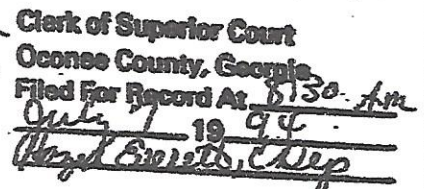 Clerk of Superior Court
Oconee County, Georgia
Filed For Record At 8:30 AM
July 7 1994
Hazel Everett, C Dep